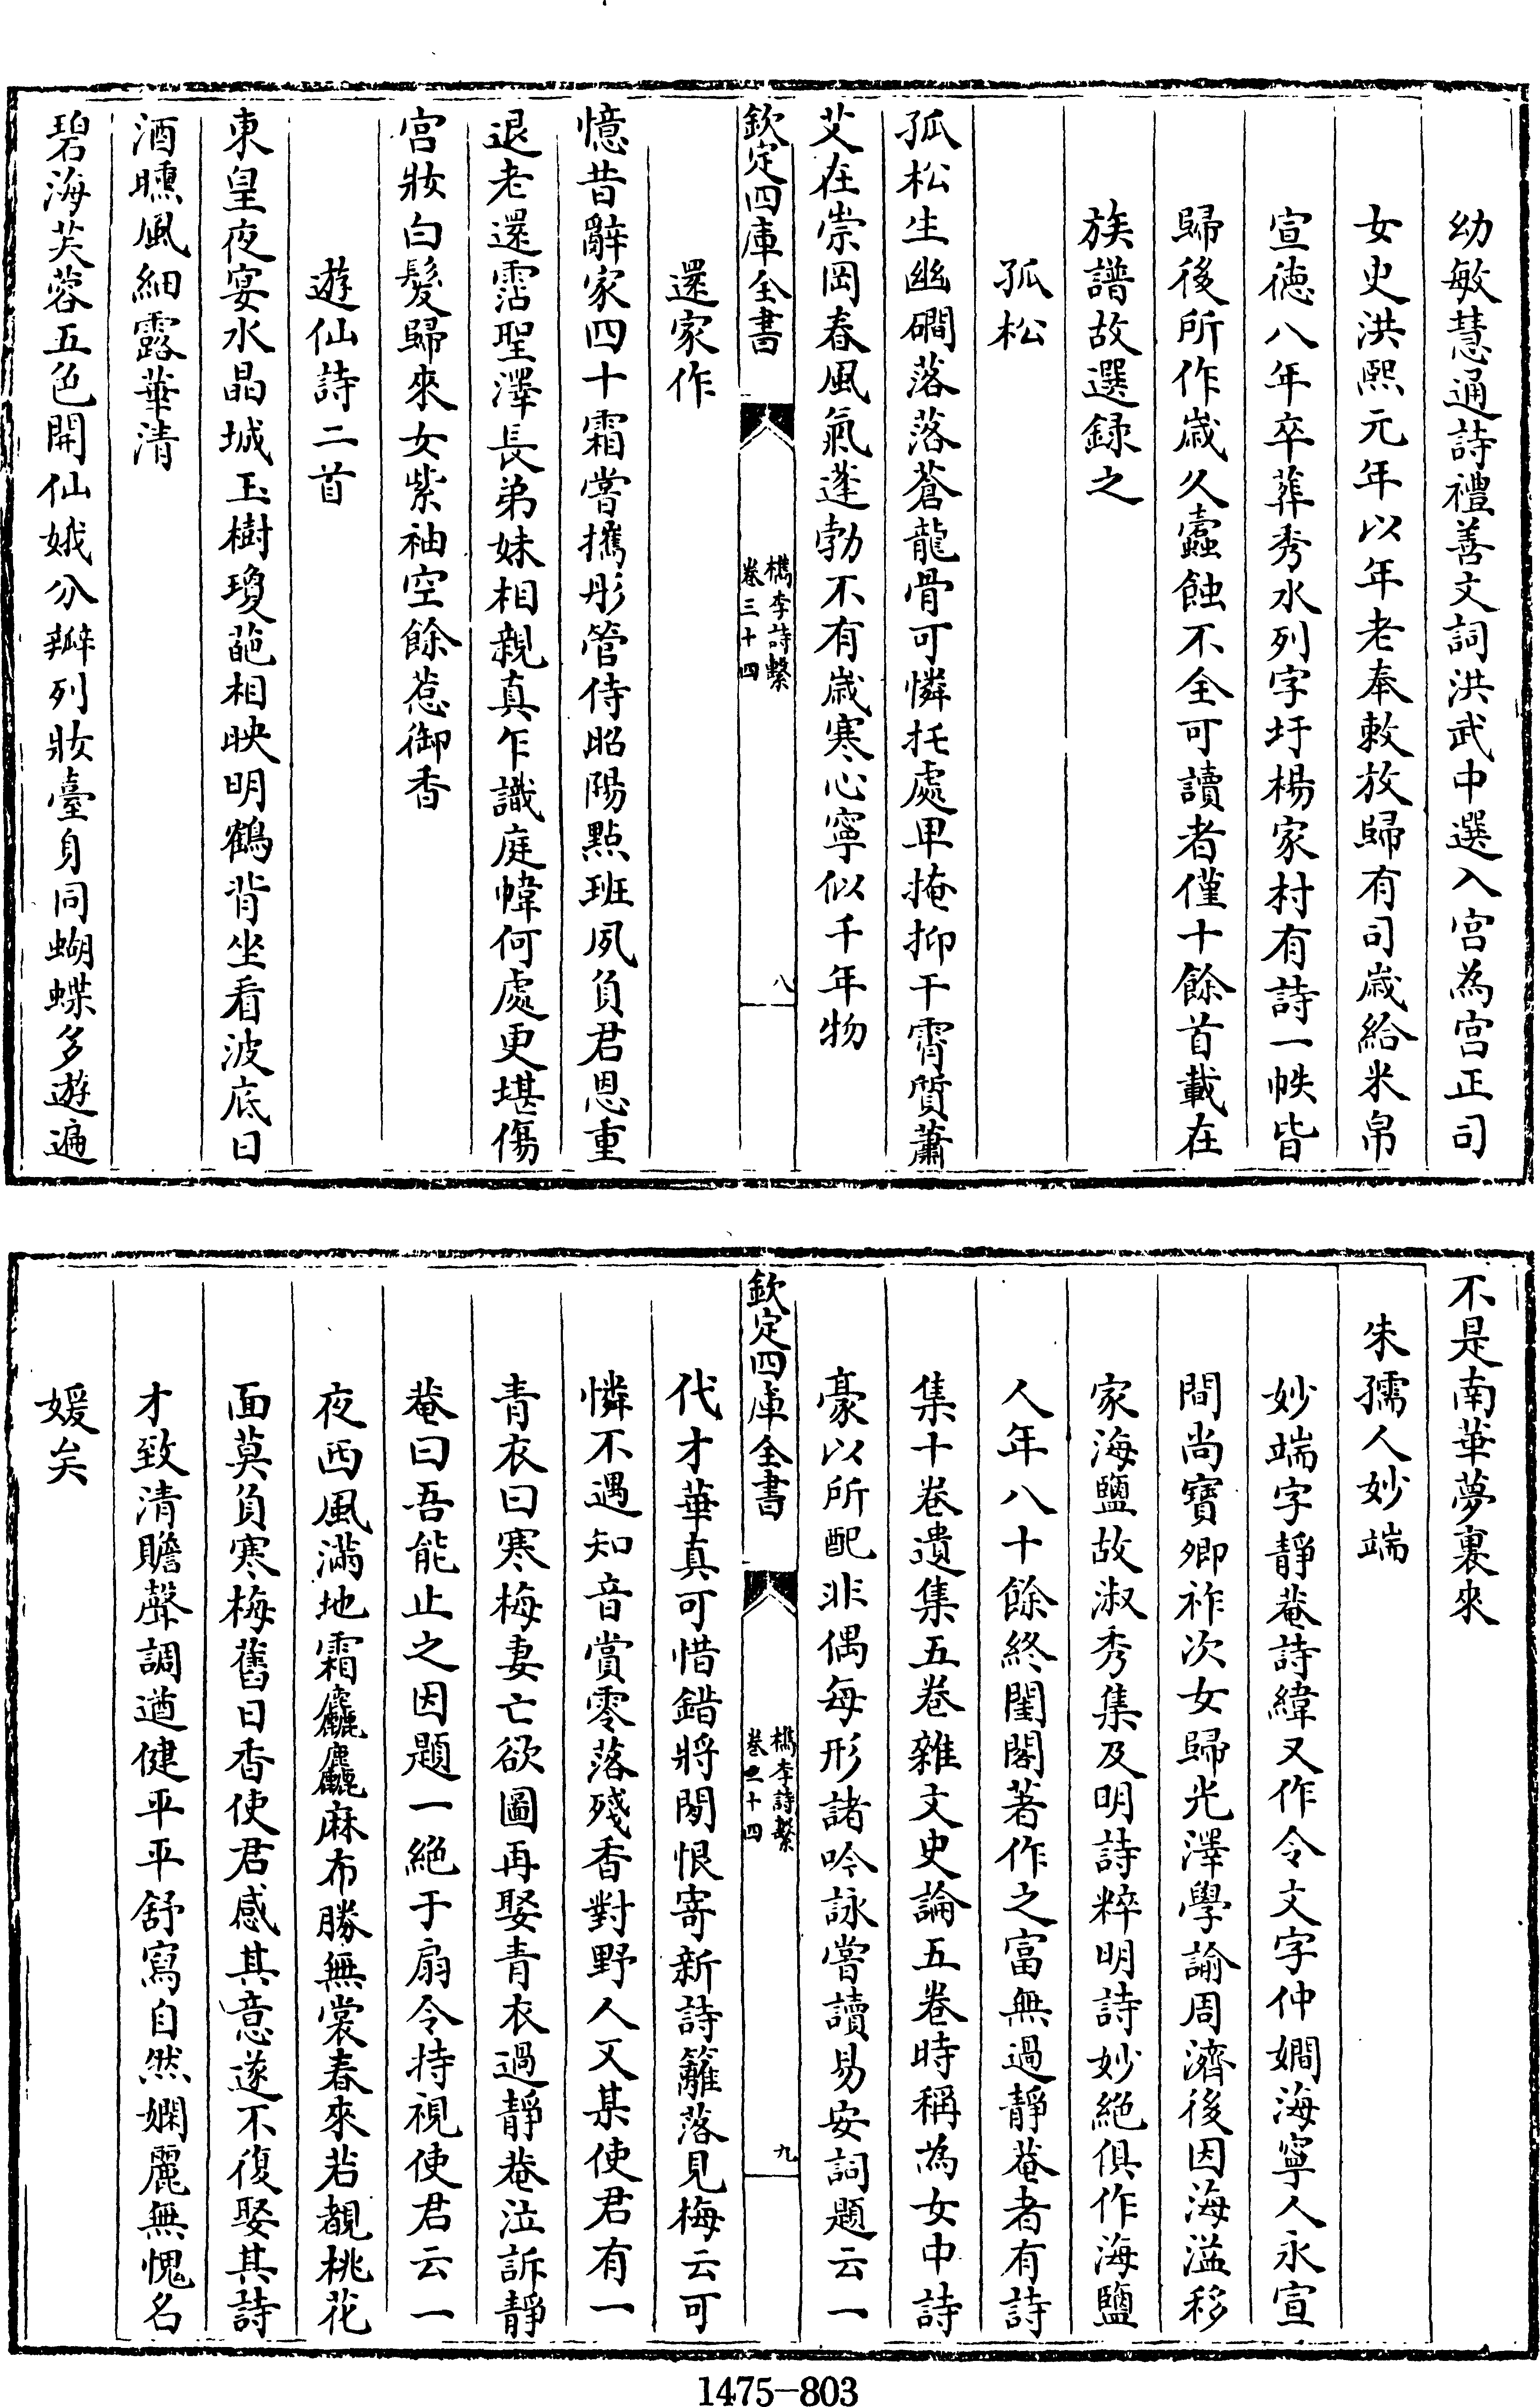 幼敏慧通詩禮善文詞洪武中選入宫為宫正司
女史洪熙元年以年老奉敕放歸有司歲給米帛
宣德八年卒葬秀水列字圩楊家村有詩一帙皆
歸後所作歲久蠧蝕不全可讀者僅十餘首載在
族譜故選録之
孤松
孤松生幽磵落落蒼龍骨可憐托處卑掩抑干霄質蕭
艾在崇岡春風氣蓬勃不有歲寒心寧似千年物
欽定四庫全書
檇李詩繫
卷三十四
八
還家作
憶昔辭家四十霜嘗攜彤管侍昭陽點班夙負君恩重
退老還霑聖澤長弟妹相親真乍識庭幃何處更堪傷
宫妝白髮歸來女紫袖空餘惹御香
遊仙詩二首
東皇夜宴水晶城玉樹瓊葩相映明鶴背坐看波底日
酒醺風細露華清
碧海芙蓉五色開仙娥分瓣列妝臺身同蝴蝶多遊遍
不是南華夢裏來
朱孺人妙端
妙端字靜菴詩緯又作令文字仲嫺海寧人永宣
間尚寶卿祚次女歸光澤學諭周濟後因海溢移
家海鹽故淑秀集及明詩粹明詩妙絶俱作海鹽
人年八十餘終閨閣著作之富無過靜菴者有詩
集十卷遺集五卷雜文史論五卷時稱為女中詩
豪以所配非偶每形諸吟詠嘗讀易安詞題云一
欽定四庫全書
檇李詩繫
卷三十四
九
代才華真可惜錯將閒恨寄新詩籬落見梅云可
憐不遇知音賞零落殘香對野人又某使君有一
青衣曰寒梅妻亡欲圖再娶青衣過靜菴泣訴靜
菴曰吾能止之因題一絶于扇令持視使君云一
夜西風滿地霜麤麤麻布勝無裳春來若覩桃花
面莫負寒梅舊日香使君感其意遂不復娶其詩
才致清贍聲調遒健平平舒寫自然嫻麗無愧名
媛矣
1475-803